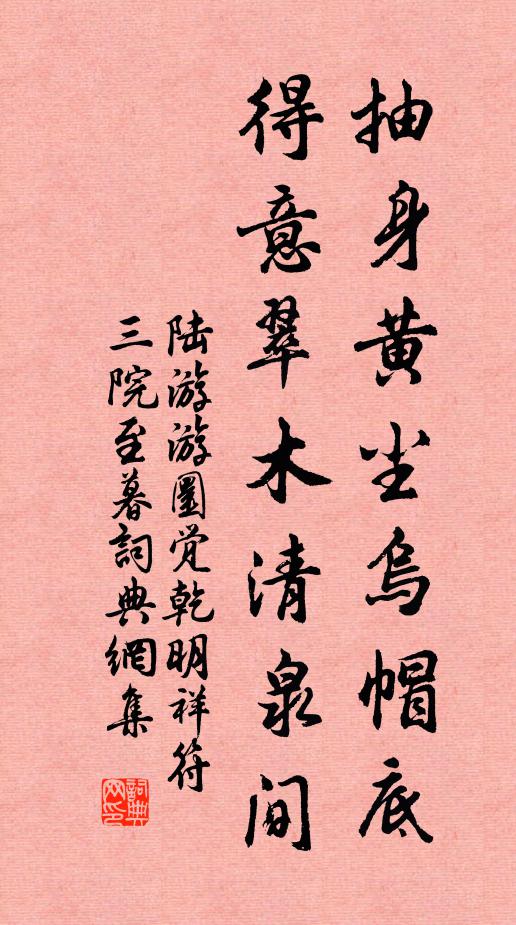 抽身黄尘乌帽底
得意翠木清泉间
陆游游圆觉乾明祥符
三院至暮词典網集
詞典
网印